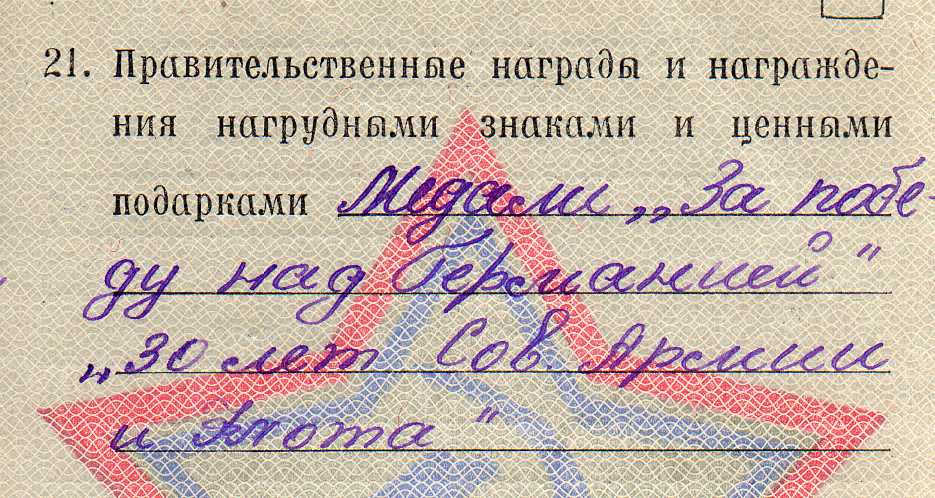 21. Правительственные награды и награжде-
ния нагрудными знаками и ценными
подарками Медали „За побе-
ду над Германией"
„30 лет Сов. Армии
и Флота"